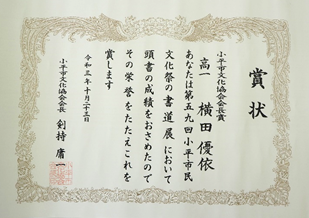 賞状
小平市文化協会会長賞
高一 横田優依
あなたは第五九回小平市民
文化祭の書道展において
頭書の成績をおさめたので
その栄誉をたたえこれを
賞します
令和三年十月二十三日
小平市文化協会会長
剣持庸一